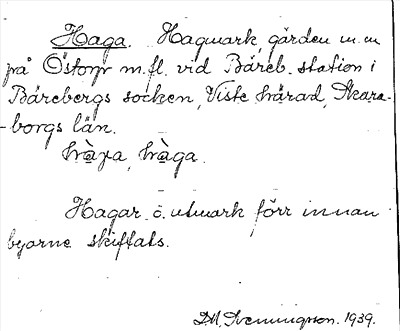 Haga. Hagmark, gården m.m
på Östorp m.fl. vid Båreb. station i
Bårebergs socken, Viste härad, Skara-
-borgs län.
hàga.
Hagar o. utmark förr innan
byarne skiftats.
D.M. Svenningson. 1939.